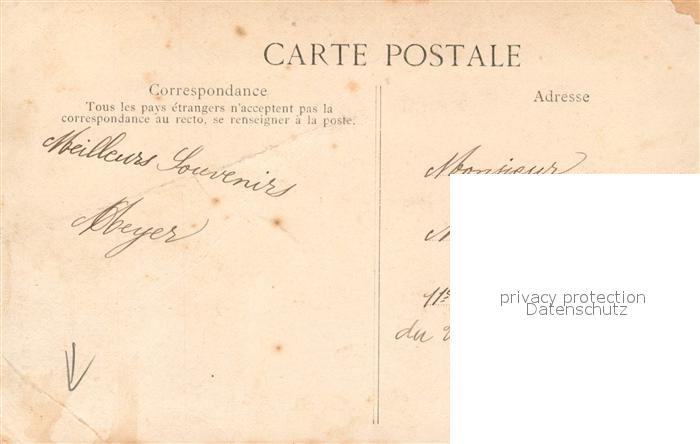 CARTE POSTALE
Correspondance
Tous les pays étrangers n'acceptent pas la
correspondance au recto, se renseigner à la poste.
Meilleurs Souvenirs
Meyer
Adresse
Monsieur
11e
du
privacy protection
Datenschutz